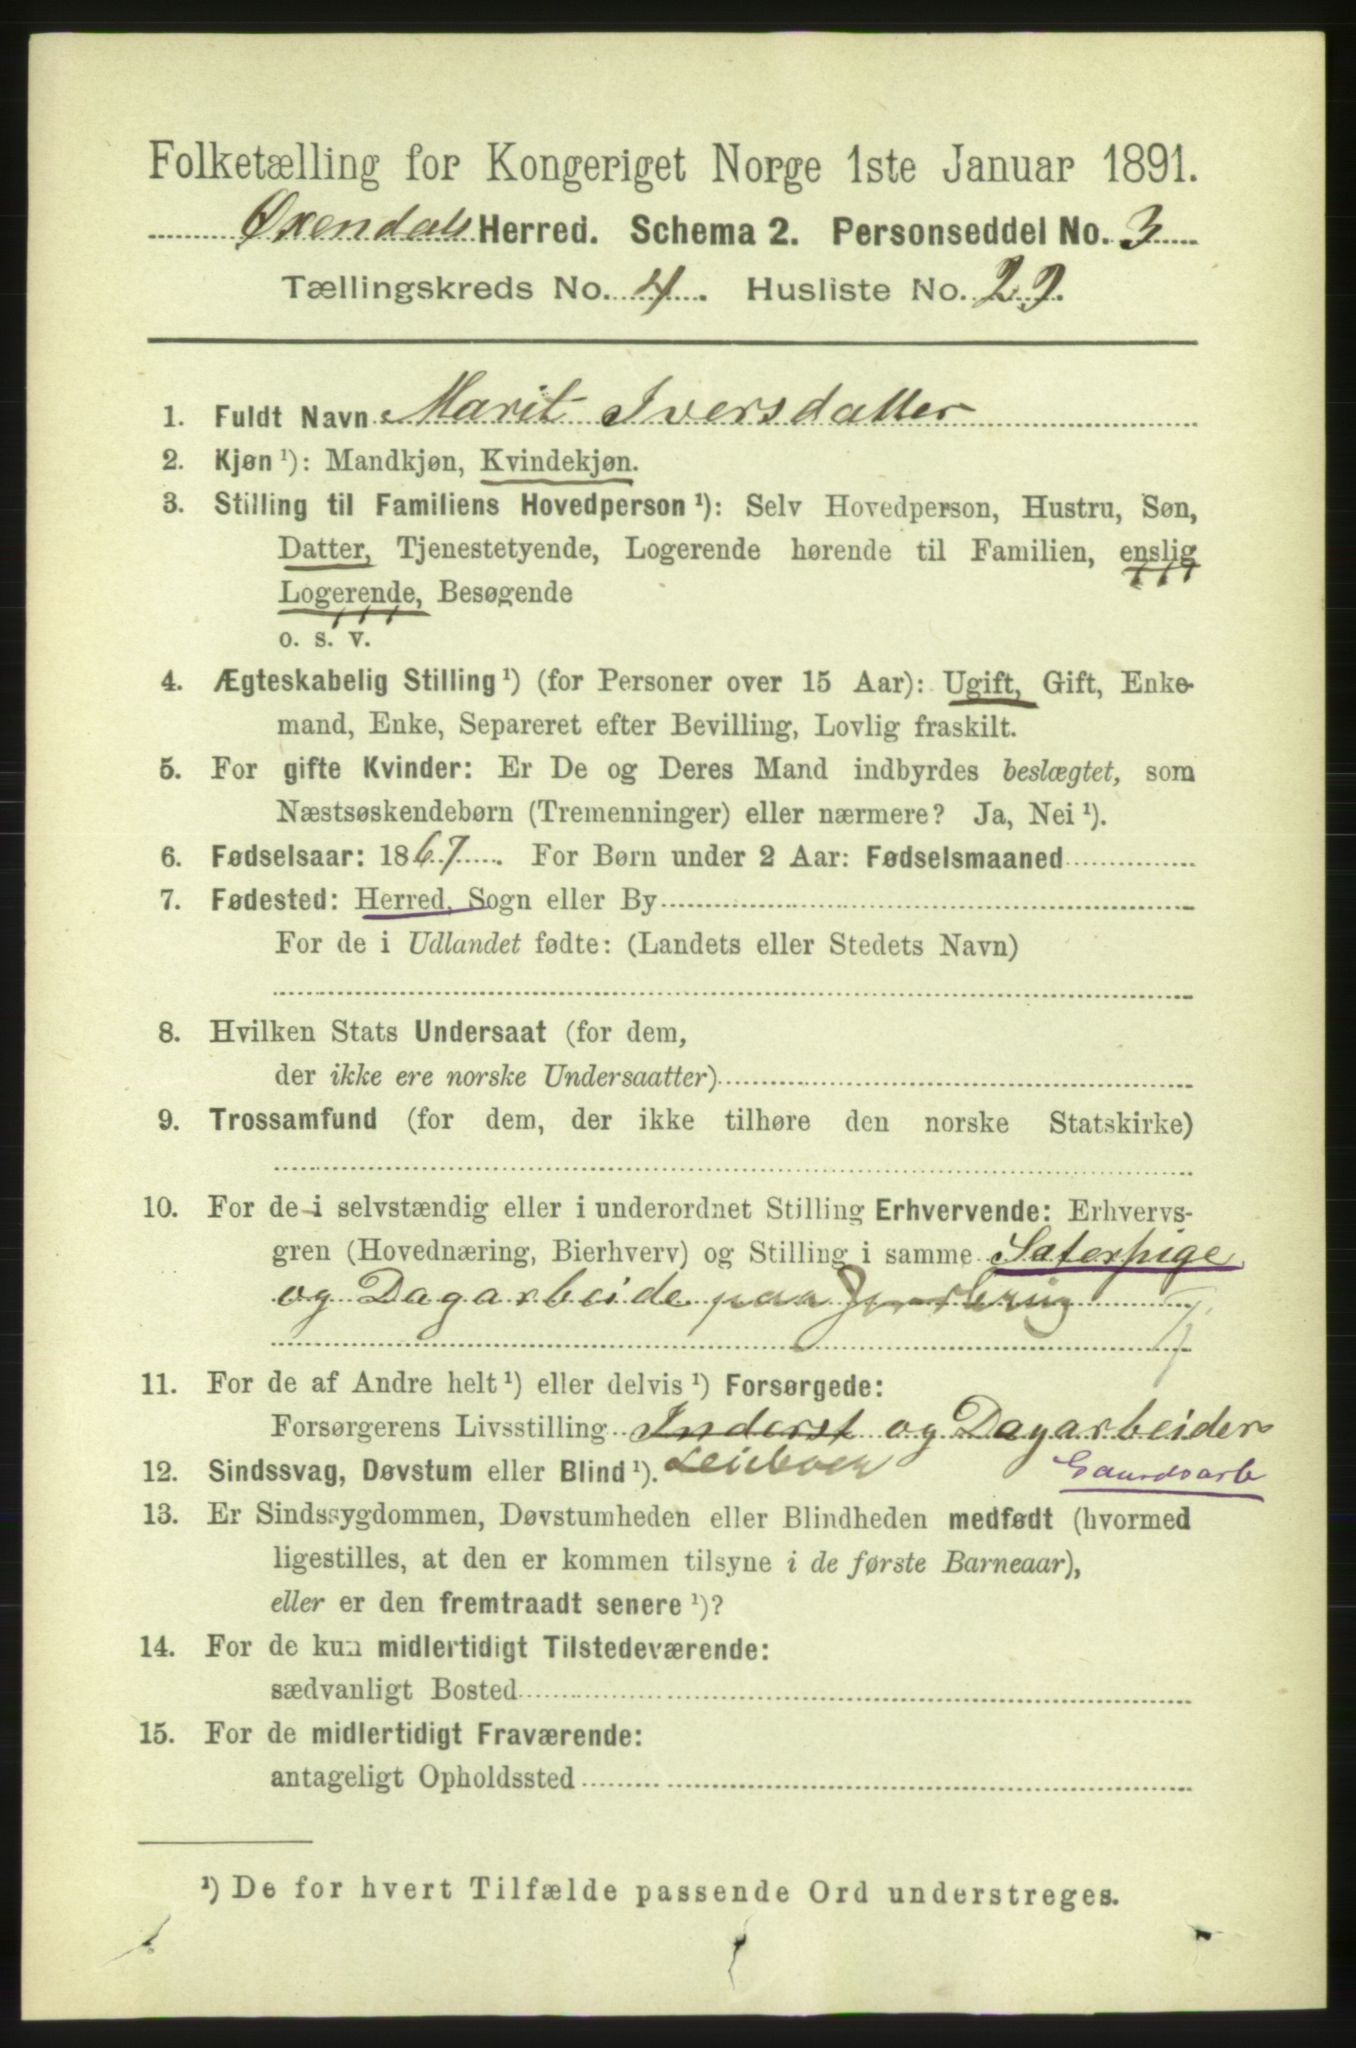 Folketælling for Kongeriget Norge 1ste Januar 1891.
Øxendals Herred. Schema 2. Personseddel No. 3
Tællingskreds No. 4. Husliste No. 29.
1. Fuldt Navn Marit Iversdatter
2. Kjøn ¹): Mandkjøn, Kvindekjøn.
3. Stilling til Familiens Hovedperson ¹): Selv Hovedperson, Hustru, Søn,
Datter, Tjenestetyende, Logerende hørende til Familien, enslig
Logerende, Besøgende
o. s. v.
4. Ægteskabelig Stilling ¹) (for Personer over 15 Aar): Ugift, Gift, Enke-
mand, Enke, Separeret efter Bevilling, Lovlig fraskilt.
5. For gifte Kvinder: Er De og Deres Mand indbyrdes beslægtet, som
Næstsøskendebørn (Tremenninger) eller nærmere? Ja, Nei ¹).
6. Fødselsaar: 1867. For Børn under 2 Aar: Fødselsmaaned
7. Fødested: Herred, Sogn eller By
For de i Udlandet fødte: (Landets eller Stedets Navn)
8. Hvilken Stats Undersaat (for dem,
der ikke ere norske Undersaatter)
9. Trossamfund (for dem, der ikke tilhøre den norske Statskirke)
10. For de i selvstændig eller i underordnet Stilling Erhvervende: Erhvervs-
gren (Hovednæring, Bierhverv) og Stilling i samme Sæterpige
og Dagarbeide paa Jordbrug
11. For de af Andre helt ¹) eller delvis ¹) Forsørgede:
Forsørgerens Livsstilling Inderst og Dagarbeider
12. Sindssvag, Døvstum eller Blind ¹). Gaardsarb
13. Er Sindssygdommen, Døvstumheden eller Blindheden medfødt (hvormed
ligestilles, at den er kommen tilsyne i de første Barneaar),
eller er den fremtraadt senere ¹)?
14. For de kun midlertidigt Tilstedeværende:
sædvanligt Bosted
15. For de midlertidigt Fraværende:
antageligt Opholdssted
¹) De for hvert Tilfælde passende Ord understreges.